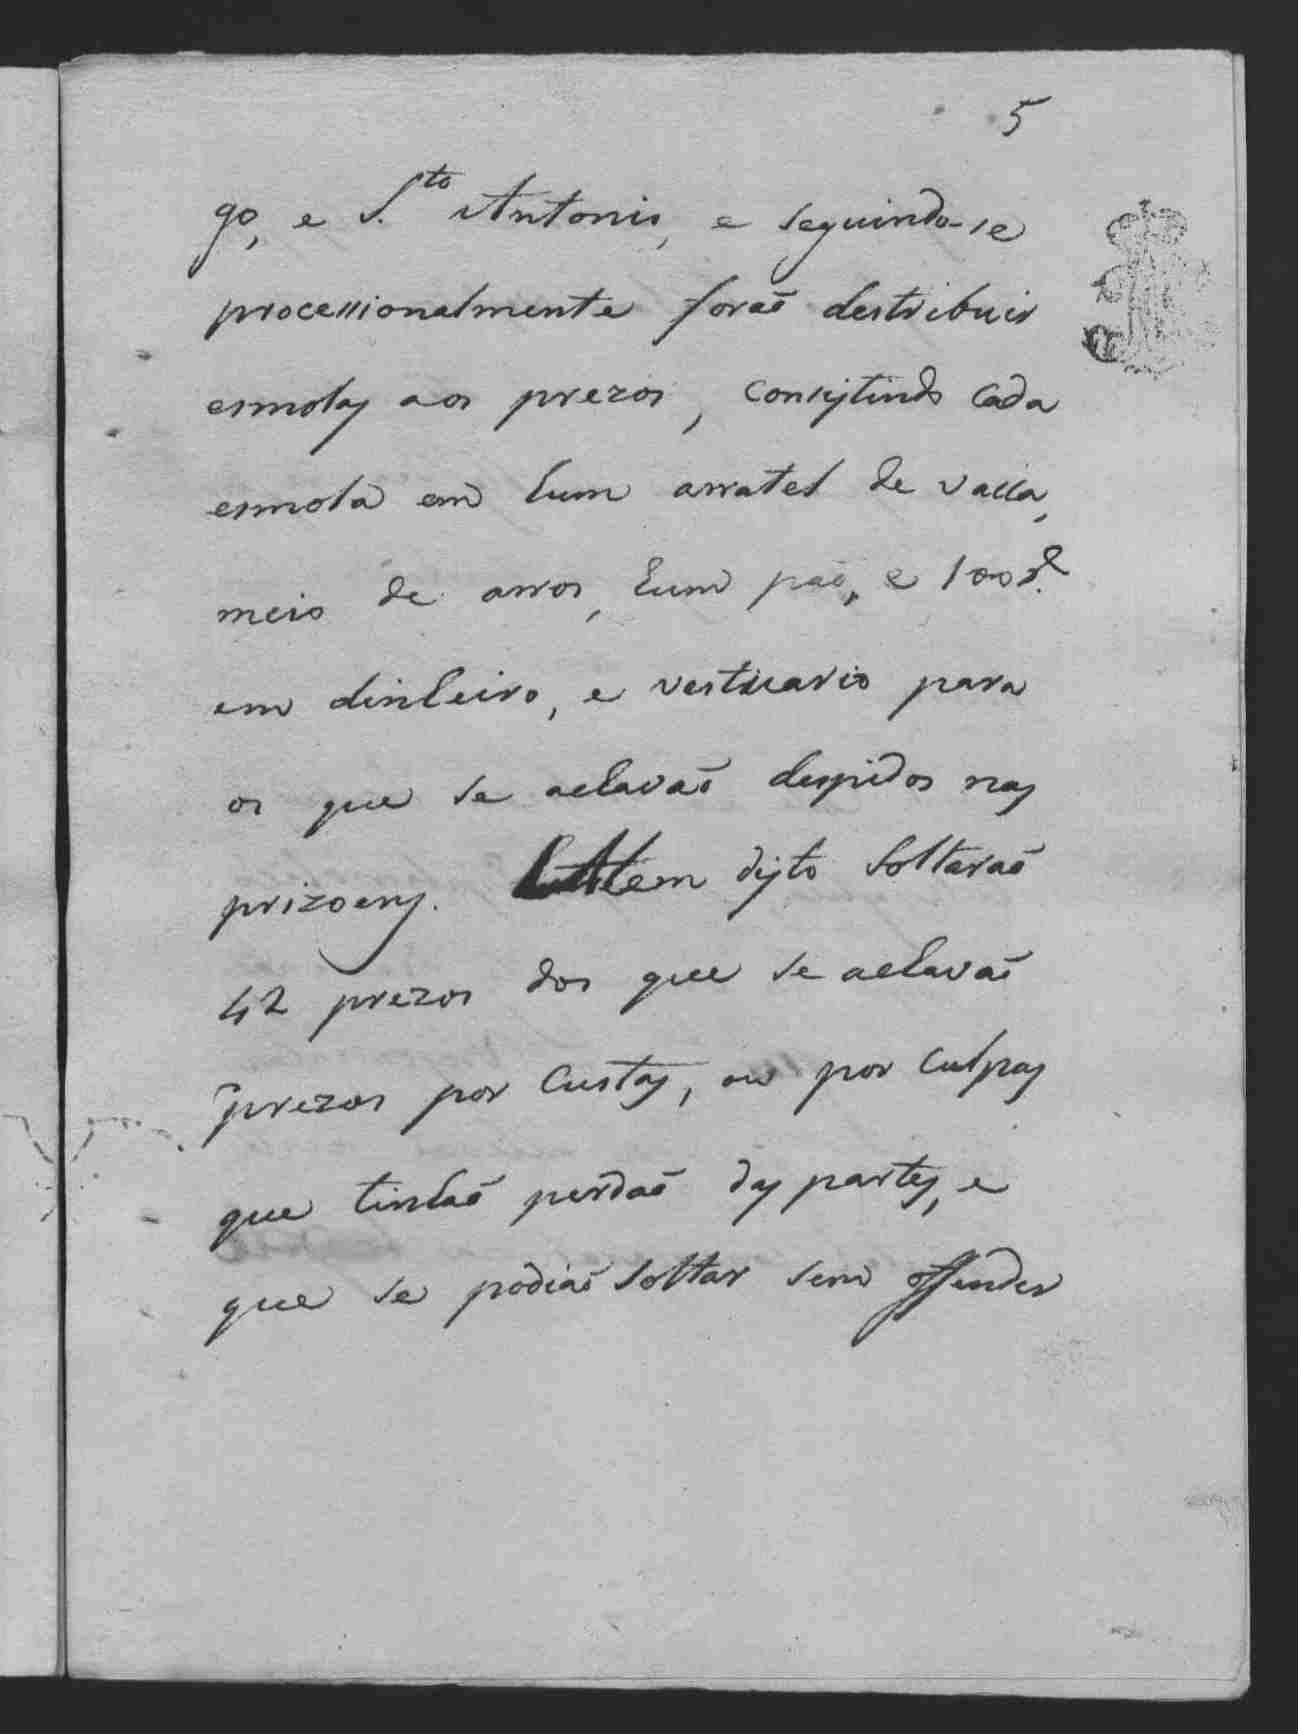 5
go, e S.to Antonio, e seguindo-se
processionalmente foraõ destribuir
esmolas aos prezos, consistindo cada
esmola em hum arratel de vacca,
meio de arros, hum paõ, e 100 r.s
em dinheiro, e vestuario para
os que se achavaõ despidos nas
prizoens. Alem disto soltaraõ
42 prezos dos que se achavaõ
prezos por custas, ou por culpas
que tinhaõ perdaõ das partes, e
que se podiaõ soltar sem offender